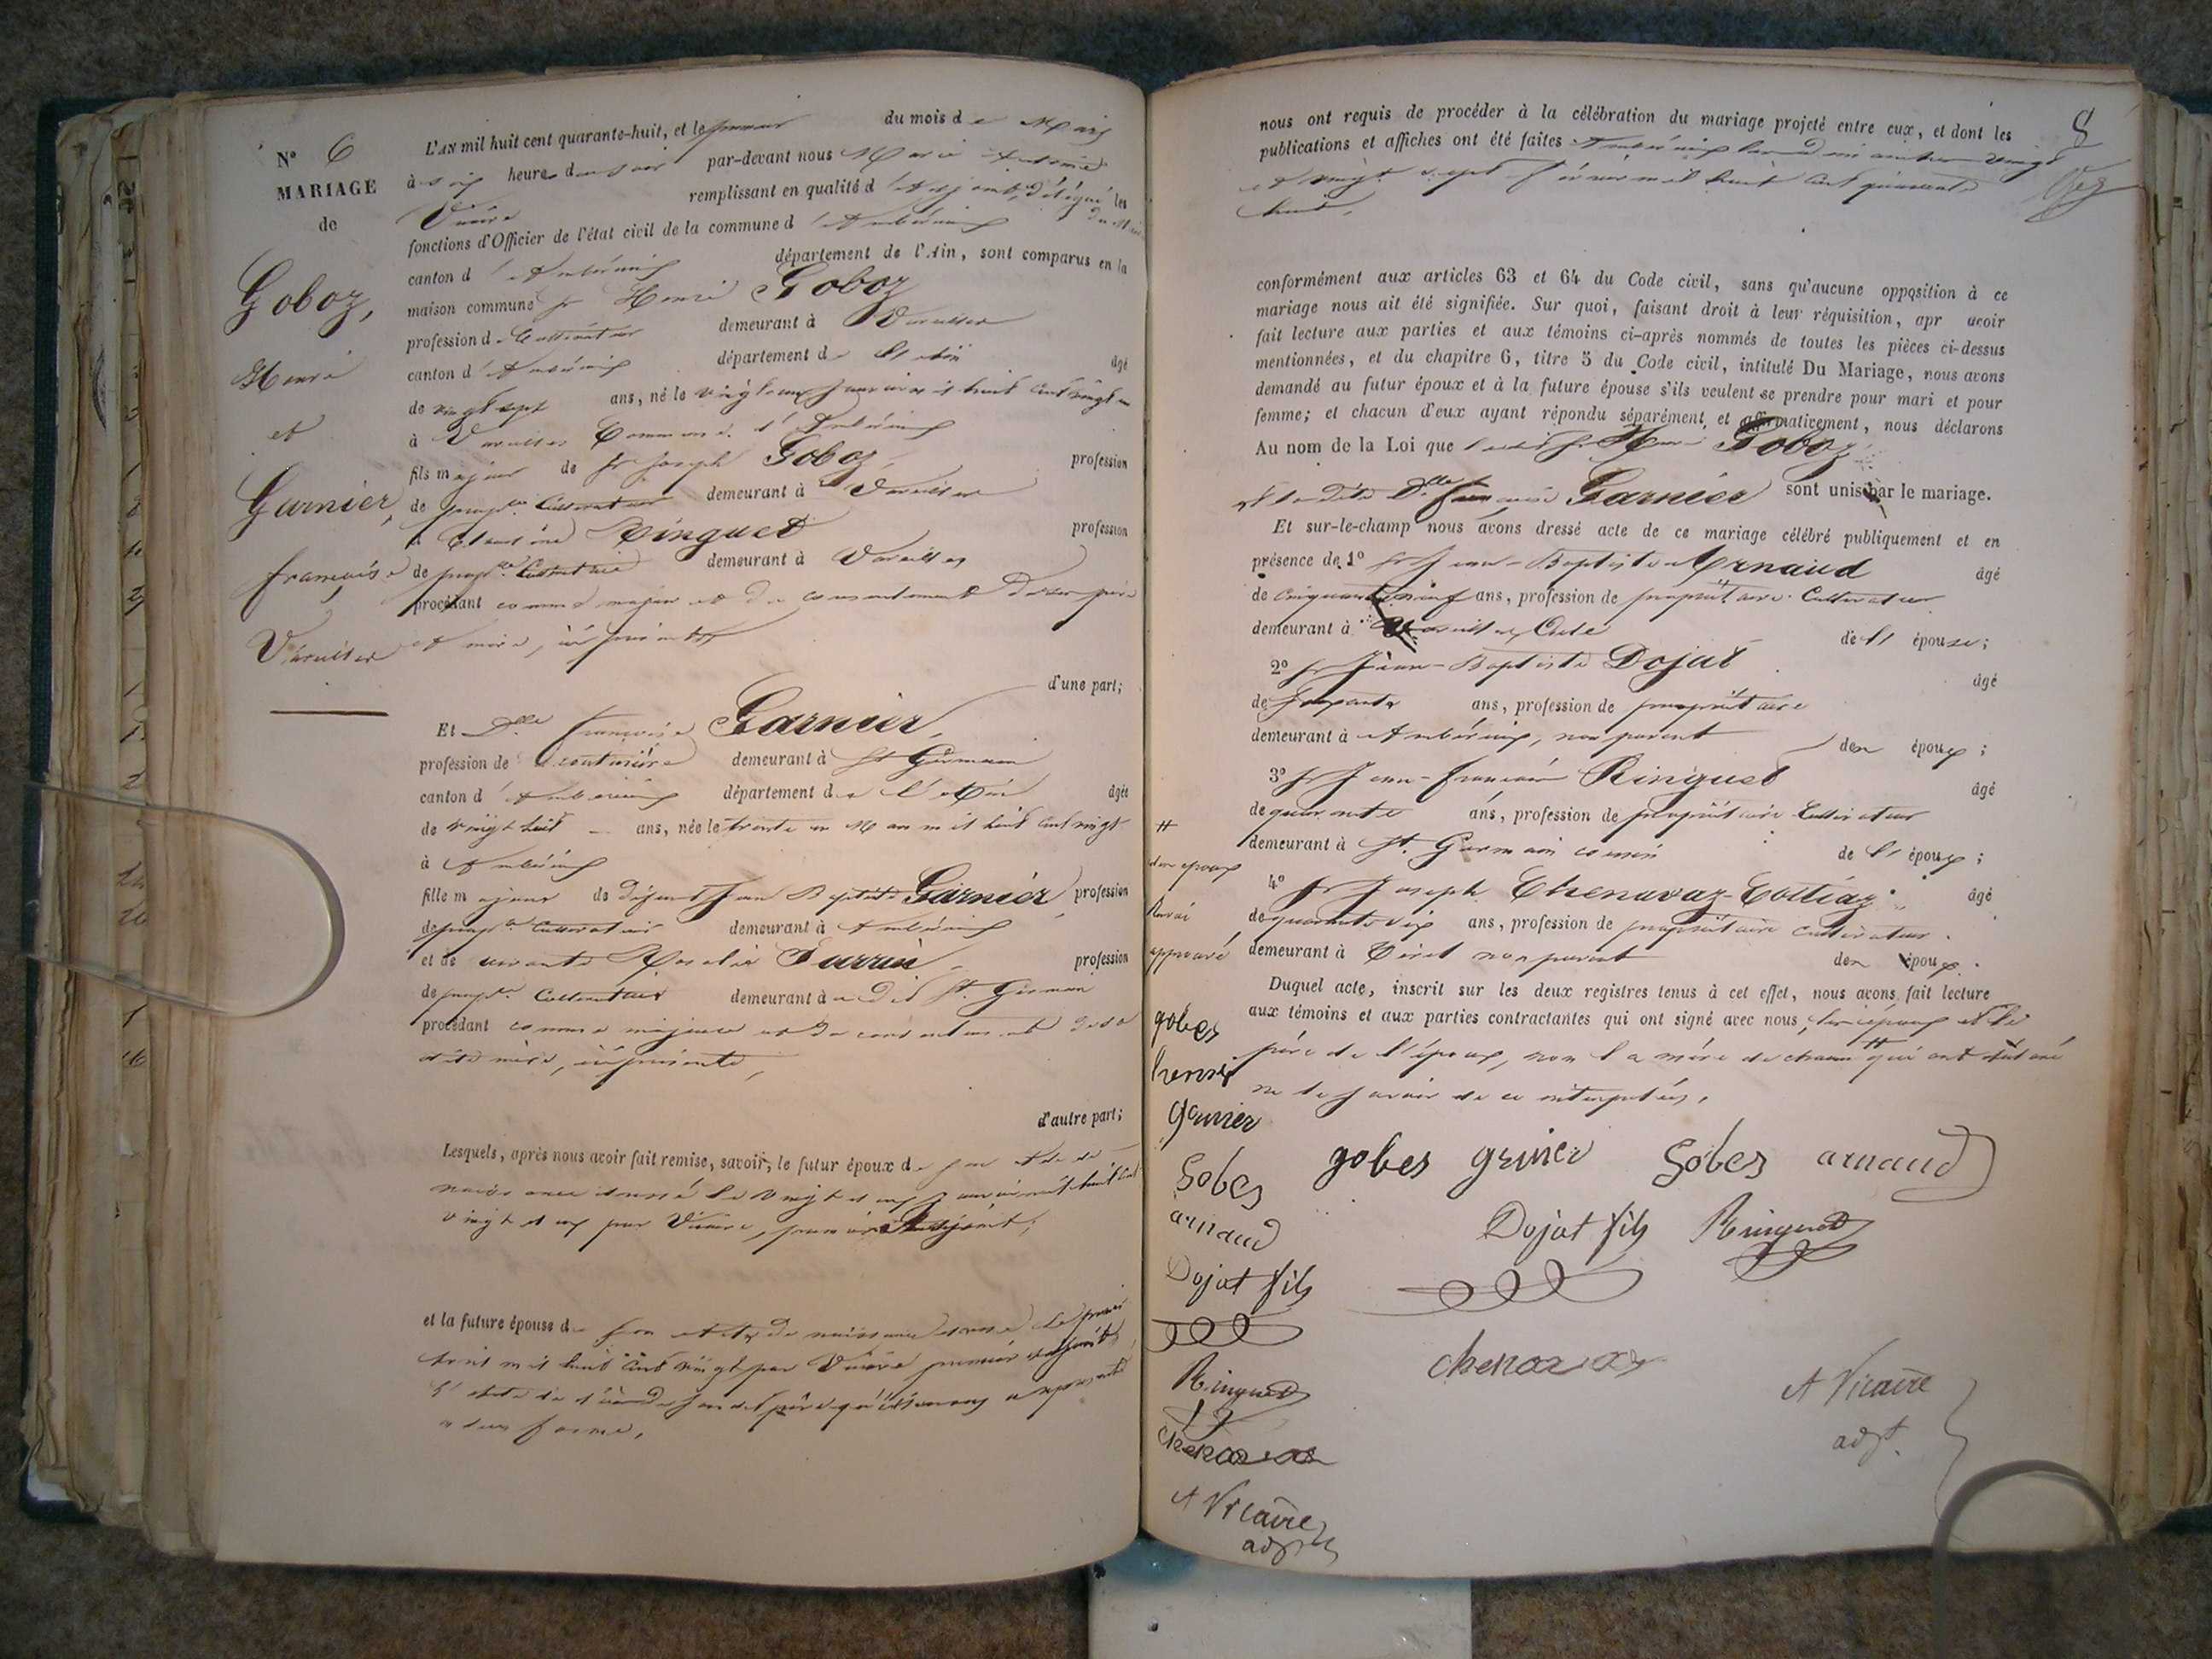 N° 6
MARIAGE
de
Goboz,
Henri
et
Garnier,
françoise
Vareilles
L'AN mil huit cent quarante-huit, et le premier du mois de Mars
à six heures du soir par-devant nous Marie Antoine
Vicaire remplissant en qualité d'Adjoint, délégué les
fonctions d'Officier de l'état civil de la commune d'Ambérieux
canton d'Ambérieux département de l'Ain, sont comparus en la
maison commune sr Henri Goboz
profession de Cultivateur demeurant à Vareilles
canton d'Ambérieux département de l'Ain âgé
de vingt sept ans, né le vingt un janvier mil huit cent vingt un
à Vareilles Commune d'Ambérieux
fils majeur de sr Joseph Goboz, profession
de propre Cultivateur demeurant à Vareilles
Ringuet profession
de propre Cultivatrice demeurant à Vareilles
procédant comme majeur et du consentement de ses père
et mère, ici présents
d'une part;
Et Dlle françoise Garnier,
profession de couturière demeurant à St Germain
canton d'Ambérieux département de l'Ain âgée
de vingt huit ans, née le trente un Mars mil huit cent vingt
à Ambérieux
fille majeure de défunt Jean Baptiste Garnier, profession
de propre Cultivateur demeurant à Ambérieux
et de vivante Rosalie profession
de propre Cultivatrice demeurant à au dit St. Germain
procédant comme majeure et du consentement de sa
dite mère, ici présente,
d'autre part;
Lesquels, après nous avoir fait remise, savoir; le futur époux de son Acte de
naissance dressé le vingt deux janvier mil huit cent
vingt et un par Vicaire, premier Adjoint;
et la future épouse de son acte de naissance dressé le premier
avril mil huit cent vingt par Vicaire premier adjoint
l'acte de décès de son père qu'ils nous
forme.
8
nous ont requis de procéder à la célébration du mariage projeté entre eux, et dont les
publications et affiches ont été faites Ambérieux les dimanches vingt
et vingt sept février mil huit cent quarante
huit,
conformément aux articles 63 et 64 du Code civil, sans qu'aucune opposition à ce
mariage nous ait été signifiée. Sur quoi, faisant droit à leur réquisition, apr avoir
fait lecture aux parties et aux témoins ci-après nommés de toutes les pièces ci-dessus
mentionnées, et du chapitre 6, titre 5 du Code civil, intitulé Du Mariage, nous avons
demandé au futur époux et à la future épouse s'ils veulent se prendre pour mari et pour
femme; et chacun d'eux ayant répondu séparément et affirmativement, nous déclarons
Au nom de la Loi que ledit sr Henri Goboz,
et ladite Dlle françoise Garnier sont unis par le mariage.
Et sur-le-champ nous avons dressé acte de ce mariage célébré publiquement et en
présence de 1° sr Jean-Baptiste Arnaud âgé
de cinquante neuf ans, profession de propriétaire Cultivateur
demeurant à Vareilles, Oncle de l'épouse;
2° sr Jean-Baptiste Dojat âgé
de ans, profession de propriétaire
demeurant à Ambérieux, non parent des époux;
3° sr Jean-françois Ringuet âgé
de quarante ans, profession de propriétaire Cultivateur
demeurant à St. Germain cousin de l'époux;
4° sr Joseph Chenavaz-Colliaz âgé
de quarante six ans, profession de propriétaire cultivateur
demeurant à non parent des époux.
Duquel acte, inscrit sur les deux registres tenus à cet effet, nous avons fait lecture
aux témoins et aux parties contractantes qui ont signé avec nous, les époux et le
père de l'époux, non la mère de chacun # qui ont déclaré
ne le savoir de ce interpelées,
#
des époux
Renvoi
approuvé
gobes
henri
garnier
Gobes
arnaud
Dojat fils
Ringuet
A Vicaire
adjt
gobes grnier Gobes arnaud
Dojat fils Ringuet
A Vicaire
adjt.